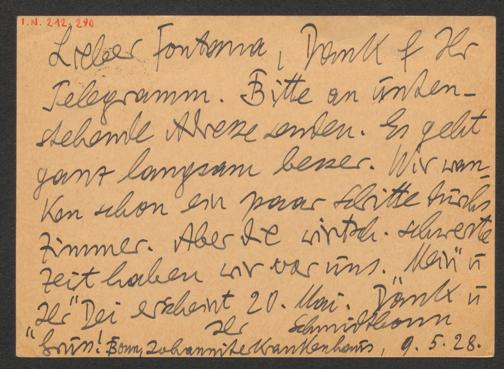 I.N. 212.290
Lieber Fontana, Dank f Ihr
Telegramm. Bitte an unten-
stehende Adresse senden. Es geht
ganz langsam besser. Wir wan-
ken schon ein paar Schritte durchs
Zimmer. Aber die wirtsch. schwerste
Zeit haben wir vor uns. "Mein" u
"Ihr" erscheint 20. Mai. Dank u
Ihr Schmidtbonn
Gruss! Bonn, Johanniterkrankenhaus, 9.5.28.